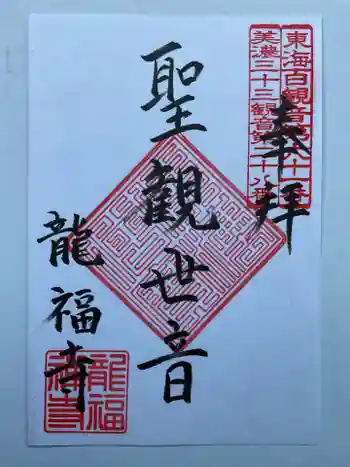 東海百観音第六十一番
美濃三十三観音第二十八番
奉拝
聖観世音
龍福寺
龍福
禅寺